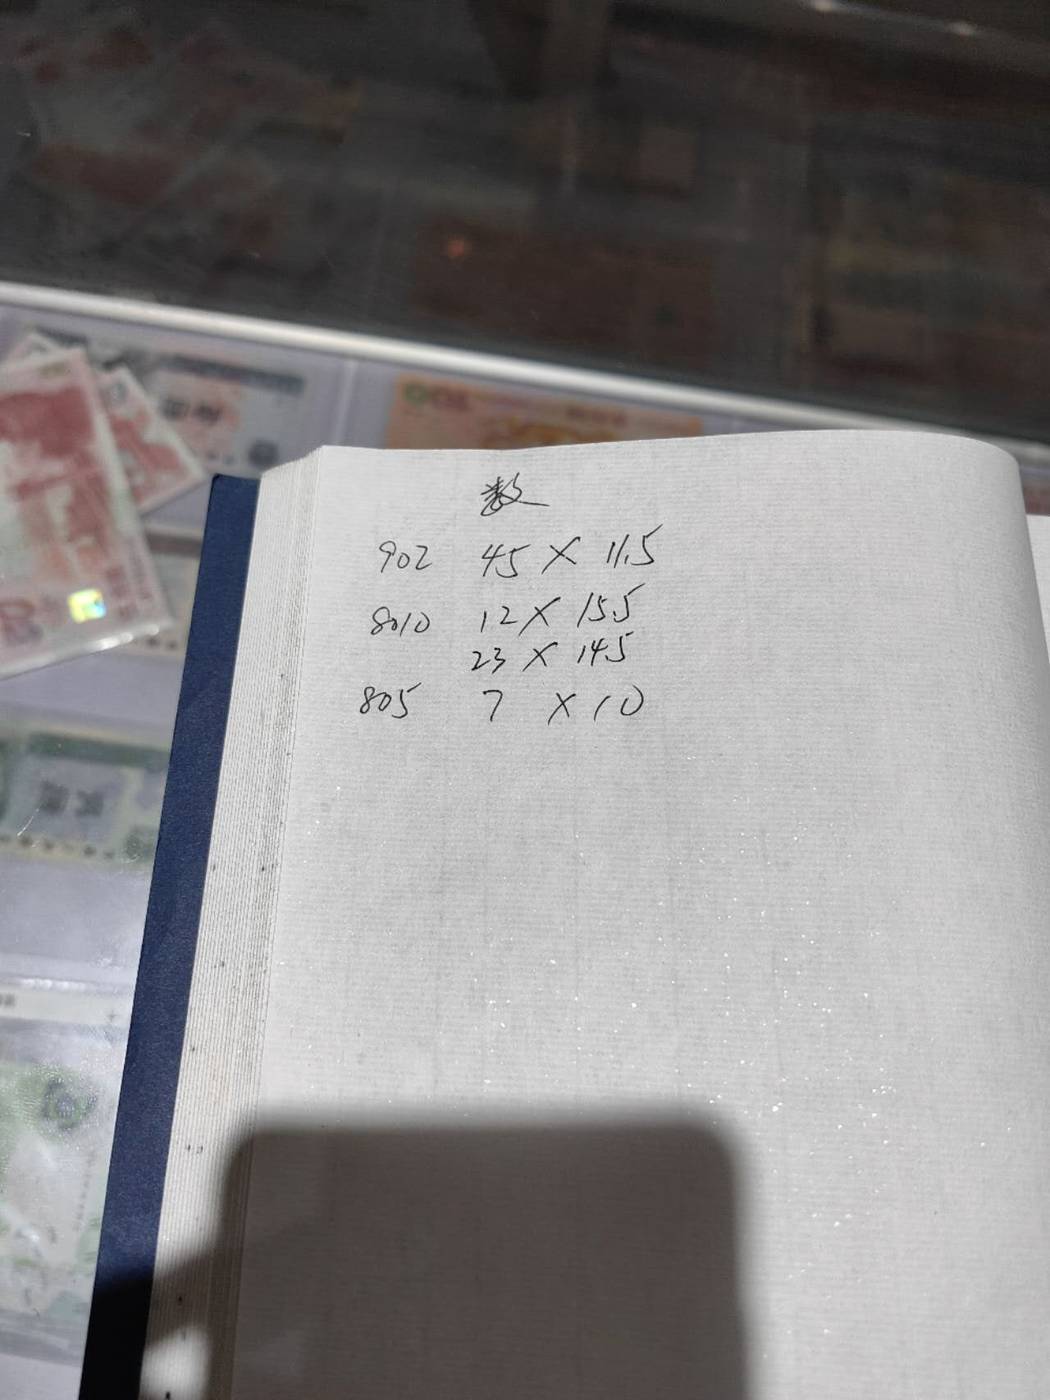 数
902 45 × 11.5
8010 12 × 15.5
23 × 14.5
805 7 × 10